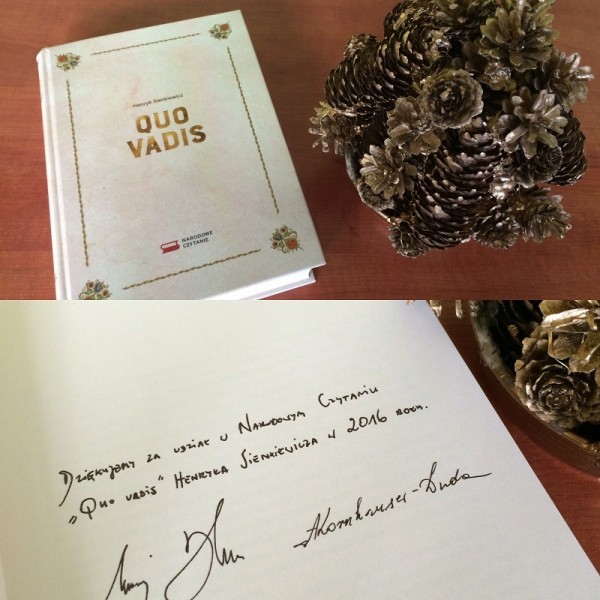 Henryk Sienkiewicz
QUO
VADIS
NARODOWE
CZYTANIE
Dziękujemy za udział w Narodowym Czytaniu
„Quo vadis" Henryka Sienkiewicza w 2016 roku.
AKornhauser-Duda